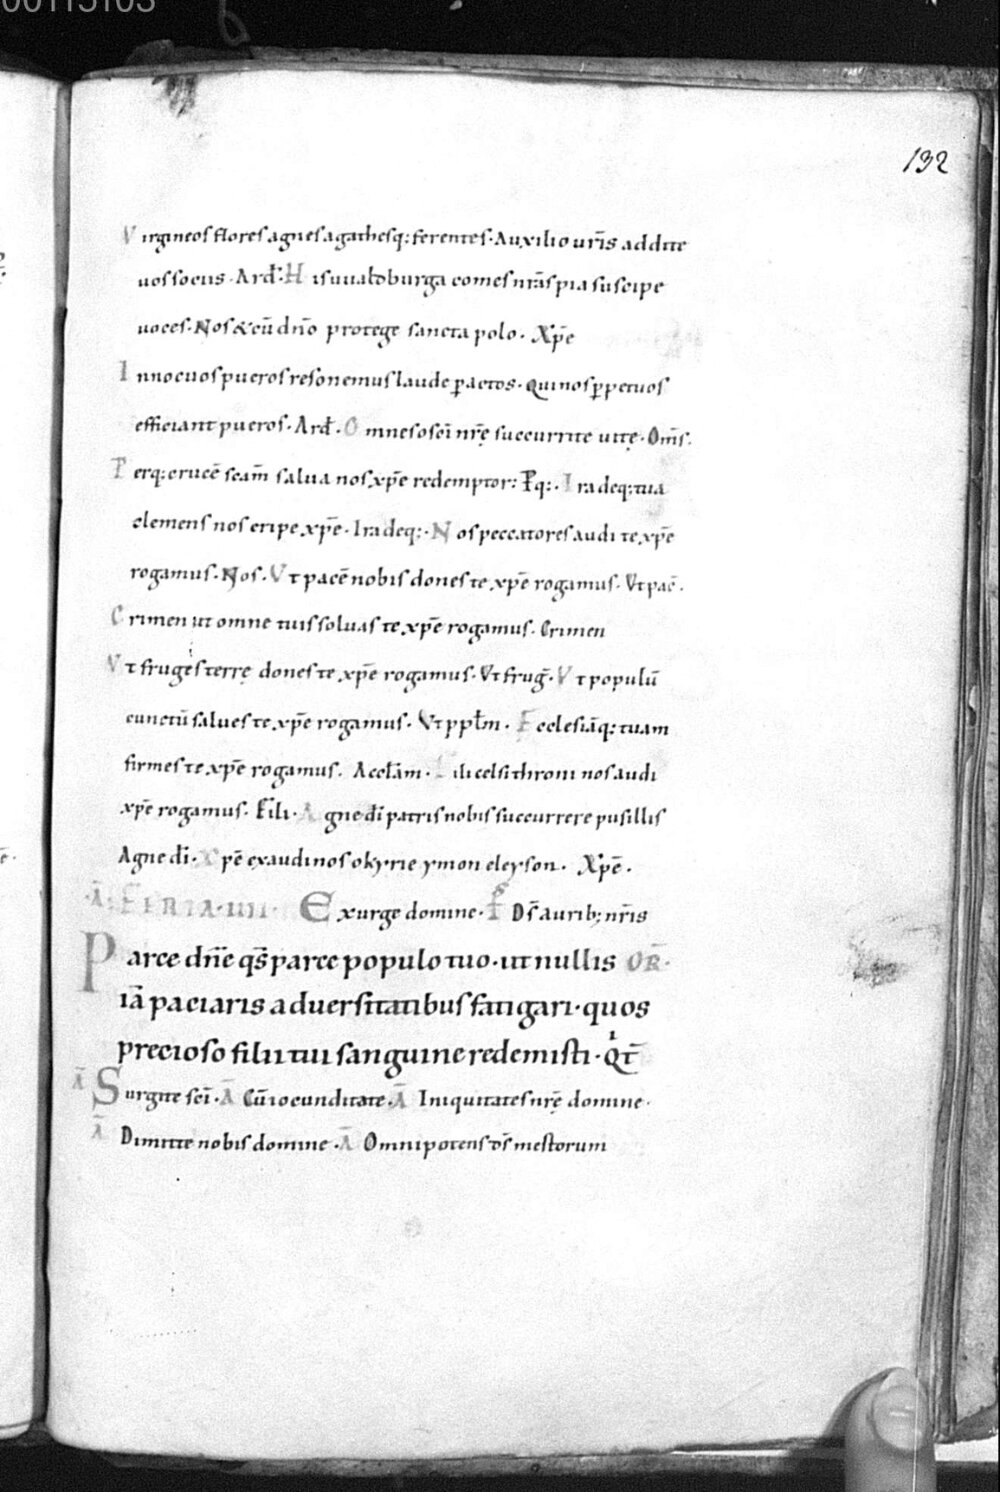 00115103
132
Virgineos flores agnes agathesq: ferentes· Auxilio ur̅is addite
uos sociis· Ard̅· His uualdburga comes nr̅as pia suscipe
uoces· Nos & cu̅ dn̅o protege sancta polo· Xp̅e
Innocuos pueros resonemus laude ꝑactos· Qui nos ꝑpetuos
efficiant pueros· Ard̅· O mnes o sc̅i nr̅ę succurrite uitę· Om̅s.
Perq: cruce̅ sc̅am̅ salua nos xp̅e redemptor: Pq:· Iradeq: tua
clemens nos eripe xp̅e· Iradeq:· Nos peccatores audi te xp̅e
rogamus· Nos· Vt pace̅ nobis dones te xp̅e rogamus· Vt pac̅·
Crimen ut omne tuis soluas te xp̅e rogamus· Crimen
Vt fruges terrę dones te xp̅e rogamus· Vt frug̅· Vt populu̅
cunctu̅ salues te xp̅e rogamus· Vt ppl̅m· Ecclesia̅q: tuam
firmes te xp̅e rogamus· Accl̅am· Fili celsithroni nos audi
xp̅e rogamus· Fili· Agne di̅ patris nobis succurrere pusillis
Agne di̅· Xpe̅ exaudi nos o kyrie ymon eleyson· Xpe̅·
·A̅: FERIA·IIII· Exurge domine· P̅ Ds̅ aurib; nr̅is
Parce dn̅e qs̅ parce populo tuo· ut nullis OR̅·
ia̅ paciaris aduersitatibus fatigari· quos
precioso filii tui sanguine redemisti· Q̅t̅
A̅ Surgite sc̅i· A̅ Cu̅ iocunditate· A̅ Iniquitates nr̅ę domine·
A̅ Dimitte nobis domine· A̅ Omnipotens ds̅ mestorum